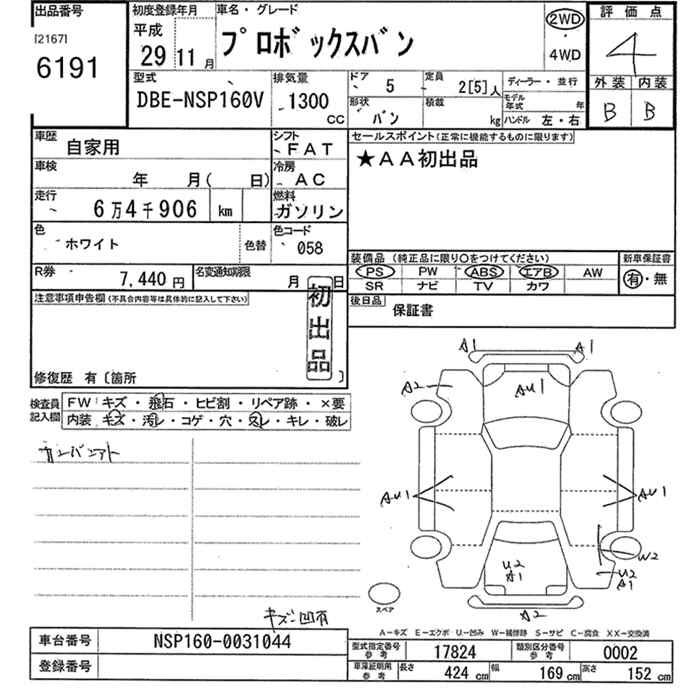 出品番号
[2167]
6191
初度登録年月
平成
29 11 月
車名・グレード
プロボックスバン
2WD
・
4WD
評価点
4
外装 内装
B B
型式
DBE-NSP160V
排気量
1300
CC
ドア 5
形状 バン
定員 2[5]人
積載 kg
ディーラー・並行
モデル年式 年
ハンドル 左・右
車歴 自家用
シフト FAT
車検 年 月( 日)
冷房 AC
走行 6万4千906 km
燃料 ガソリン
色 ホワイト 色替
色コード 058
R券 7,440 円
名変通知期限 月 日
セールスポイント(正常に機能するものに限ります)
★AA初出品
装備品(純正品に限り○をつけてください)
PS PW ABS エアB AW
SR ナビ TV カワ
新車保証書
有・無
後日品 保証書
注意事項申告欄(不具合内容等は具体的に記入して下さい)
初出品
修復歴 有〔箇所 〕
検査員記入欄
FW:キズ・飛石・ヒビ割・リペア跡・×要
内装:キズ・汚レ・コゲ・穴・スレ・キレ・破レ
キズ凹有
A1 A1
A2 AU1
AU1 AU1
W2
U2
A1
U2
A1
A2
スペア
A-キズ E-エクボ U-凹み W-補修跡 S-サビ C-腐食 XX-交換済
車台番号 NSP160-0031044
登録番号
型式指定番号 参考 17824
類別区分番号 参考 0002
車庫証明用 参考 長さ 424 cm 幅 169 cm 高さ 152 cm